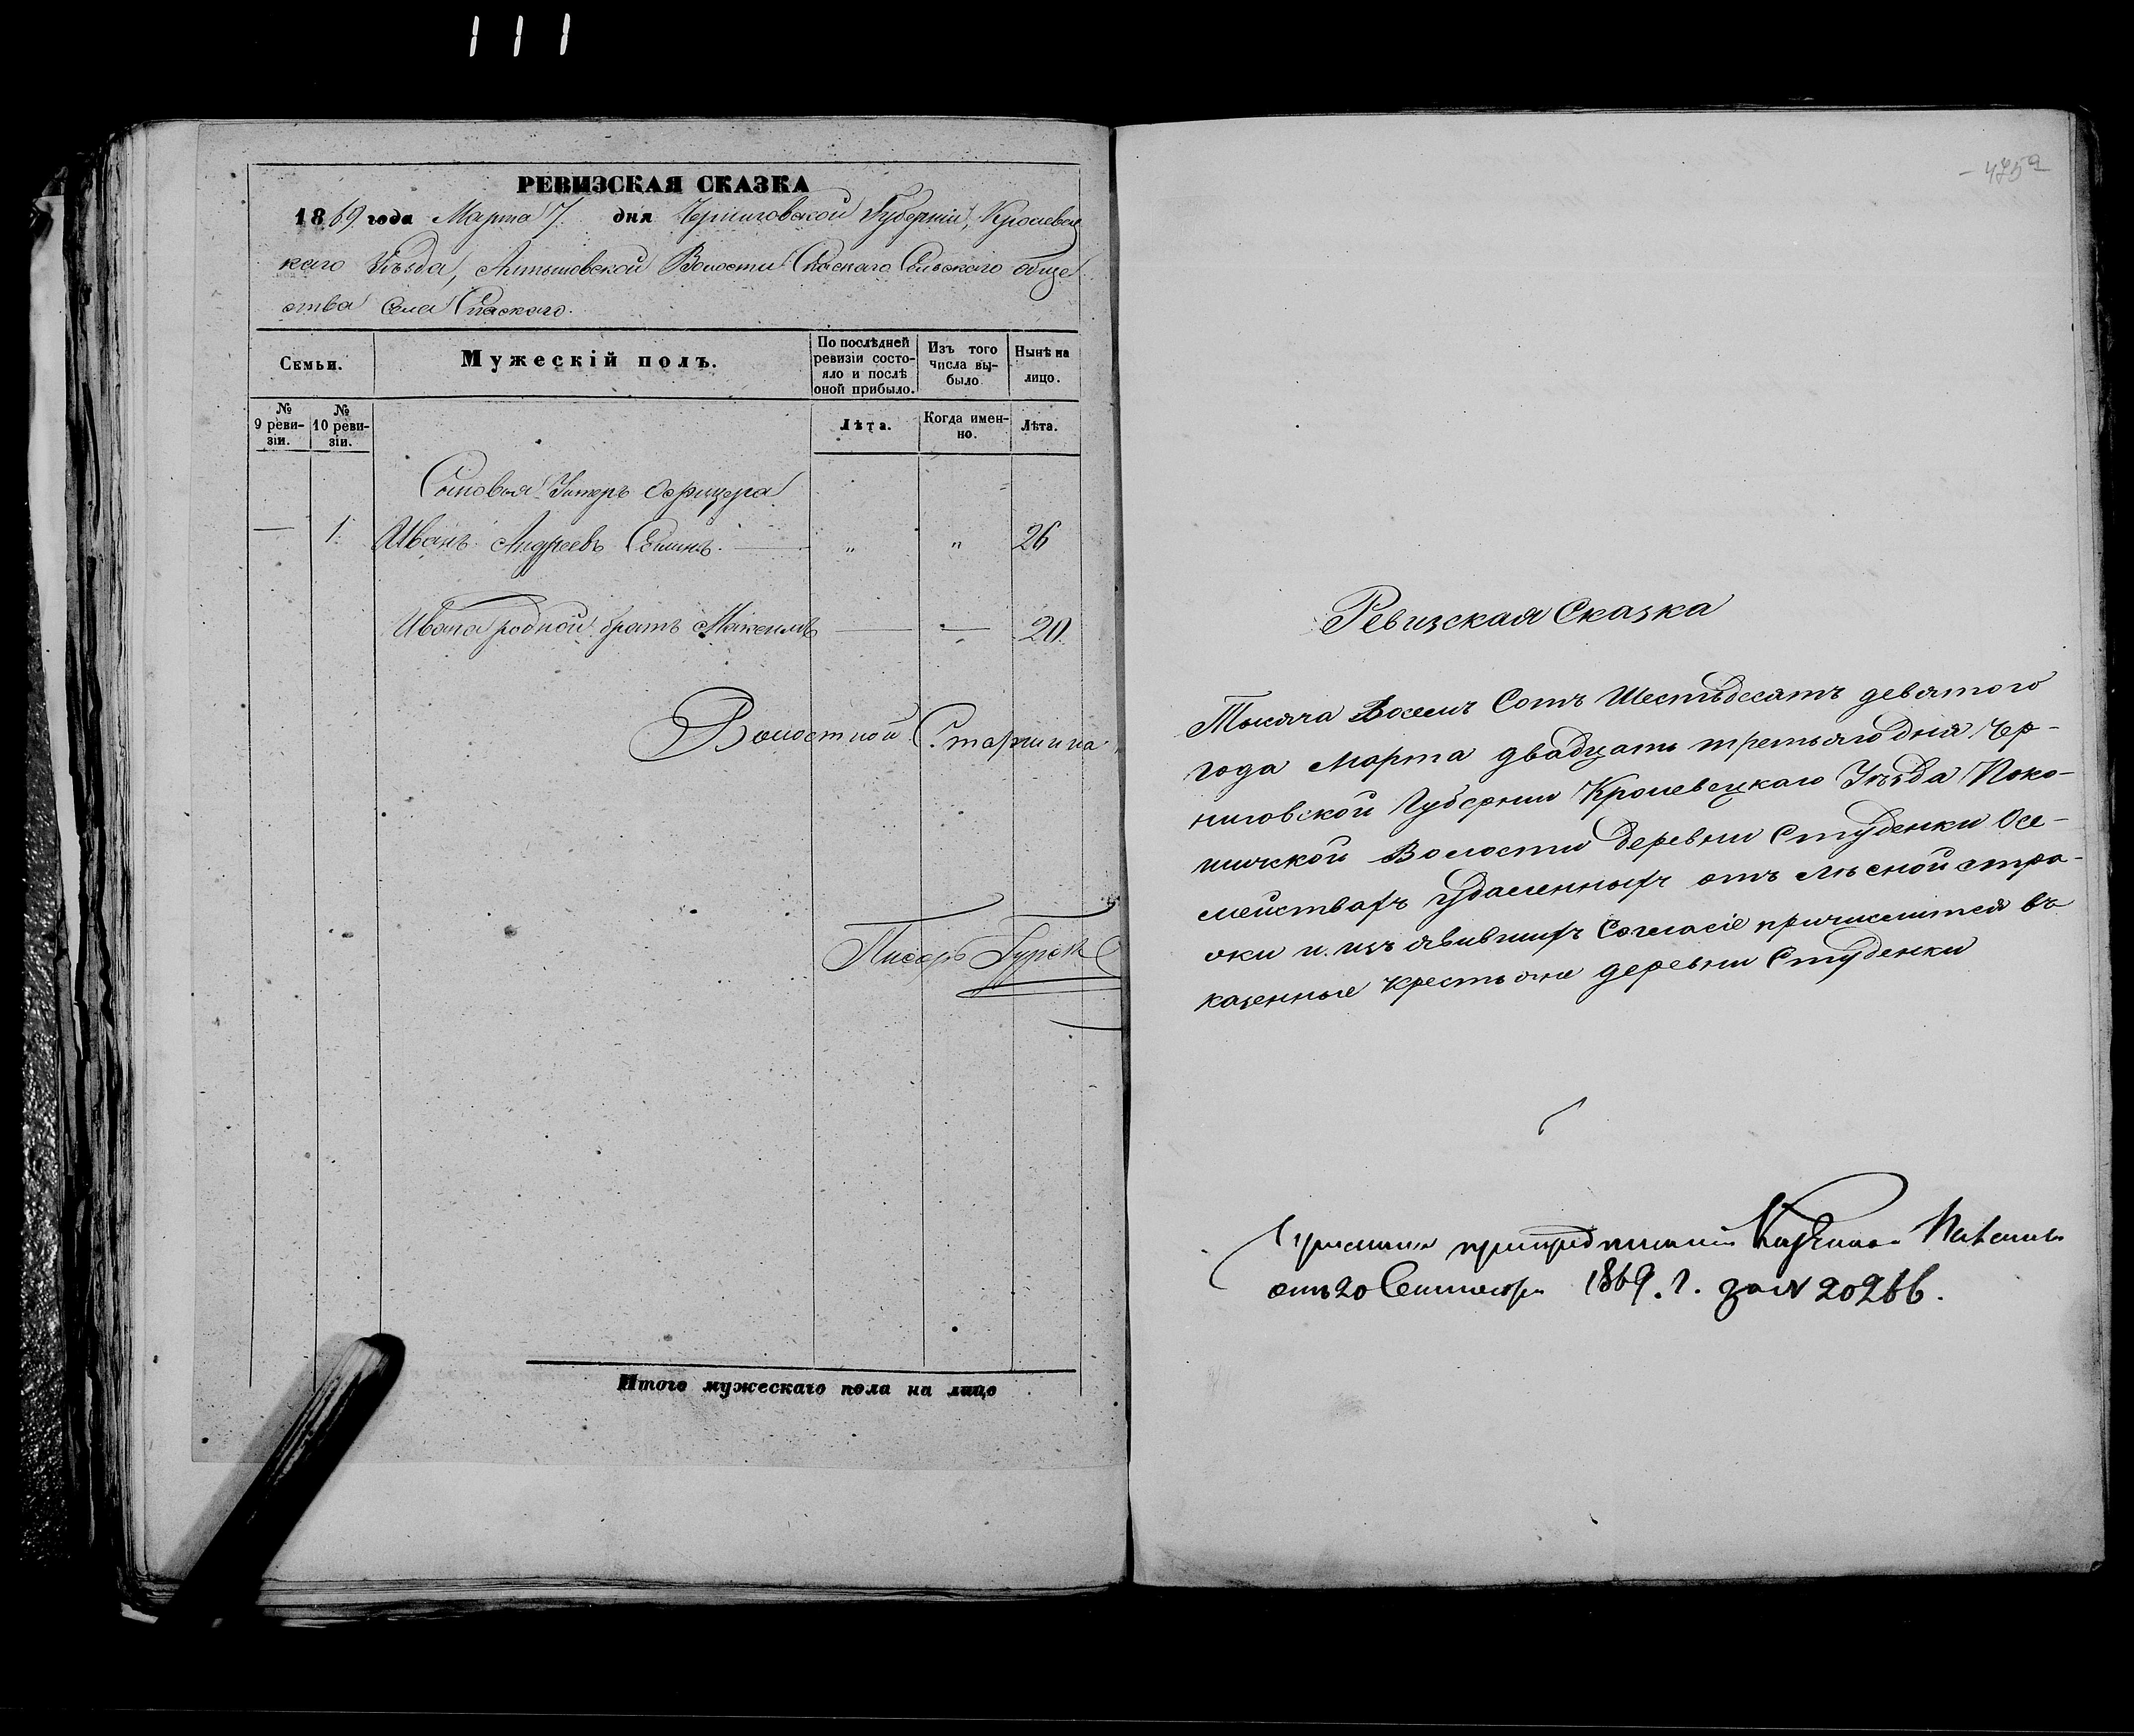 111
РЕВИЗСКАЯ СКАЗКА
1869 года Марта 7 дня Черниговской Губерніи, Кролевец
каго Уѣзда, Алтыновской Волости Спаскаго Сельскаго обще
ства Села Спаского.
Семьи.
Мужескій полъ.
По послѣдней ревизіи состо-
яло и послѣ
оной прибыло.
Изъ того
числа вы-
было.
Нынѣ на
лицо.
№
9 реви-
зіи.
№
10 реви-
зіи.
Лѣта.
Когда имен-
но.
Лѣта.
Сыновья Унтеръ Офицера
— 1. Иванъ Андреевъ Сѣминъ. — „ „ 26
Ивана родной братъ Максимъ — — 20
Волостной Старшина
Писарь
Итого мужескаго пола на лицо
475а
Ревизская Сказка
Тысяча Восемъ Сотъ Шестьдесятъ девятого
года Марта двадцать третьяго дня Чер-
ниговской Губернии Кролевецкаго Уѣзда Поко-
шичской Волости деревни Студенки Осе-
мействахъ удаленныхъ отъ лѣсной стра-
жи и изъявившихъ Согласіе причислится въ
казенные крестьяне деревни Студенки
при предписании Казенной Палаты
отъ 20 Сентября 1869. г. за № 20266.